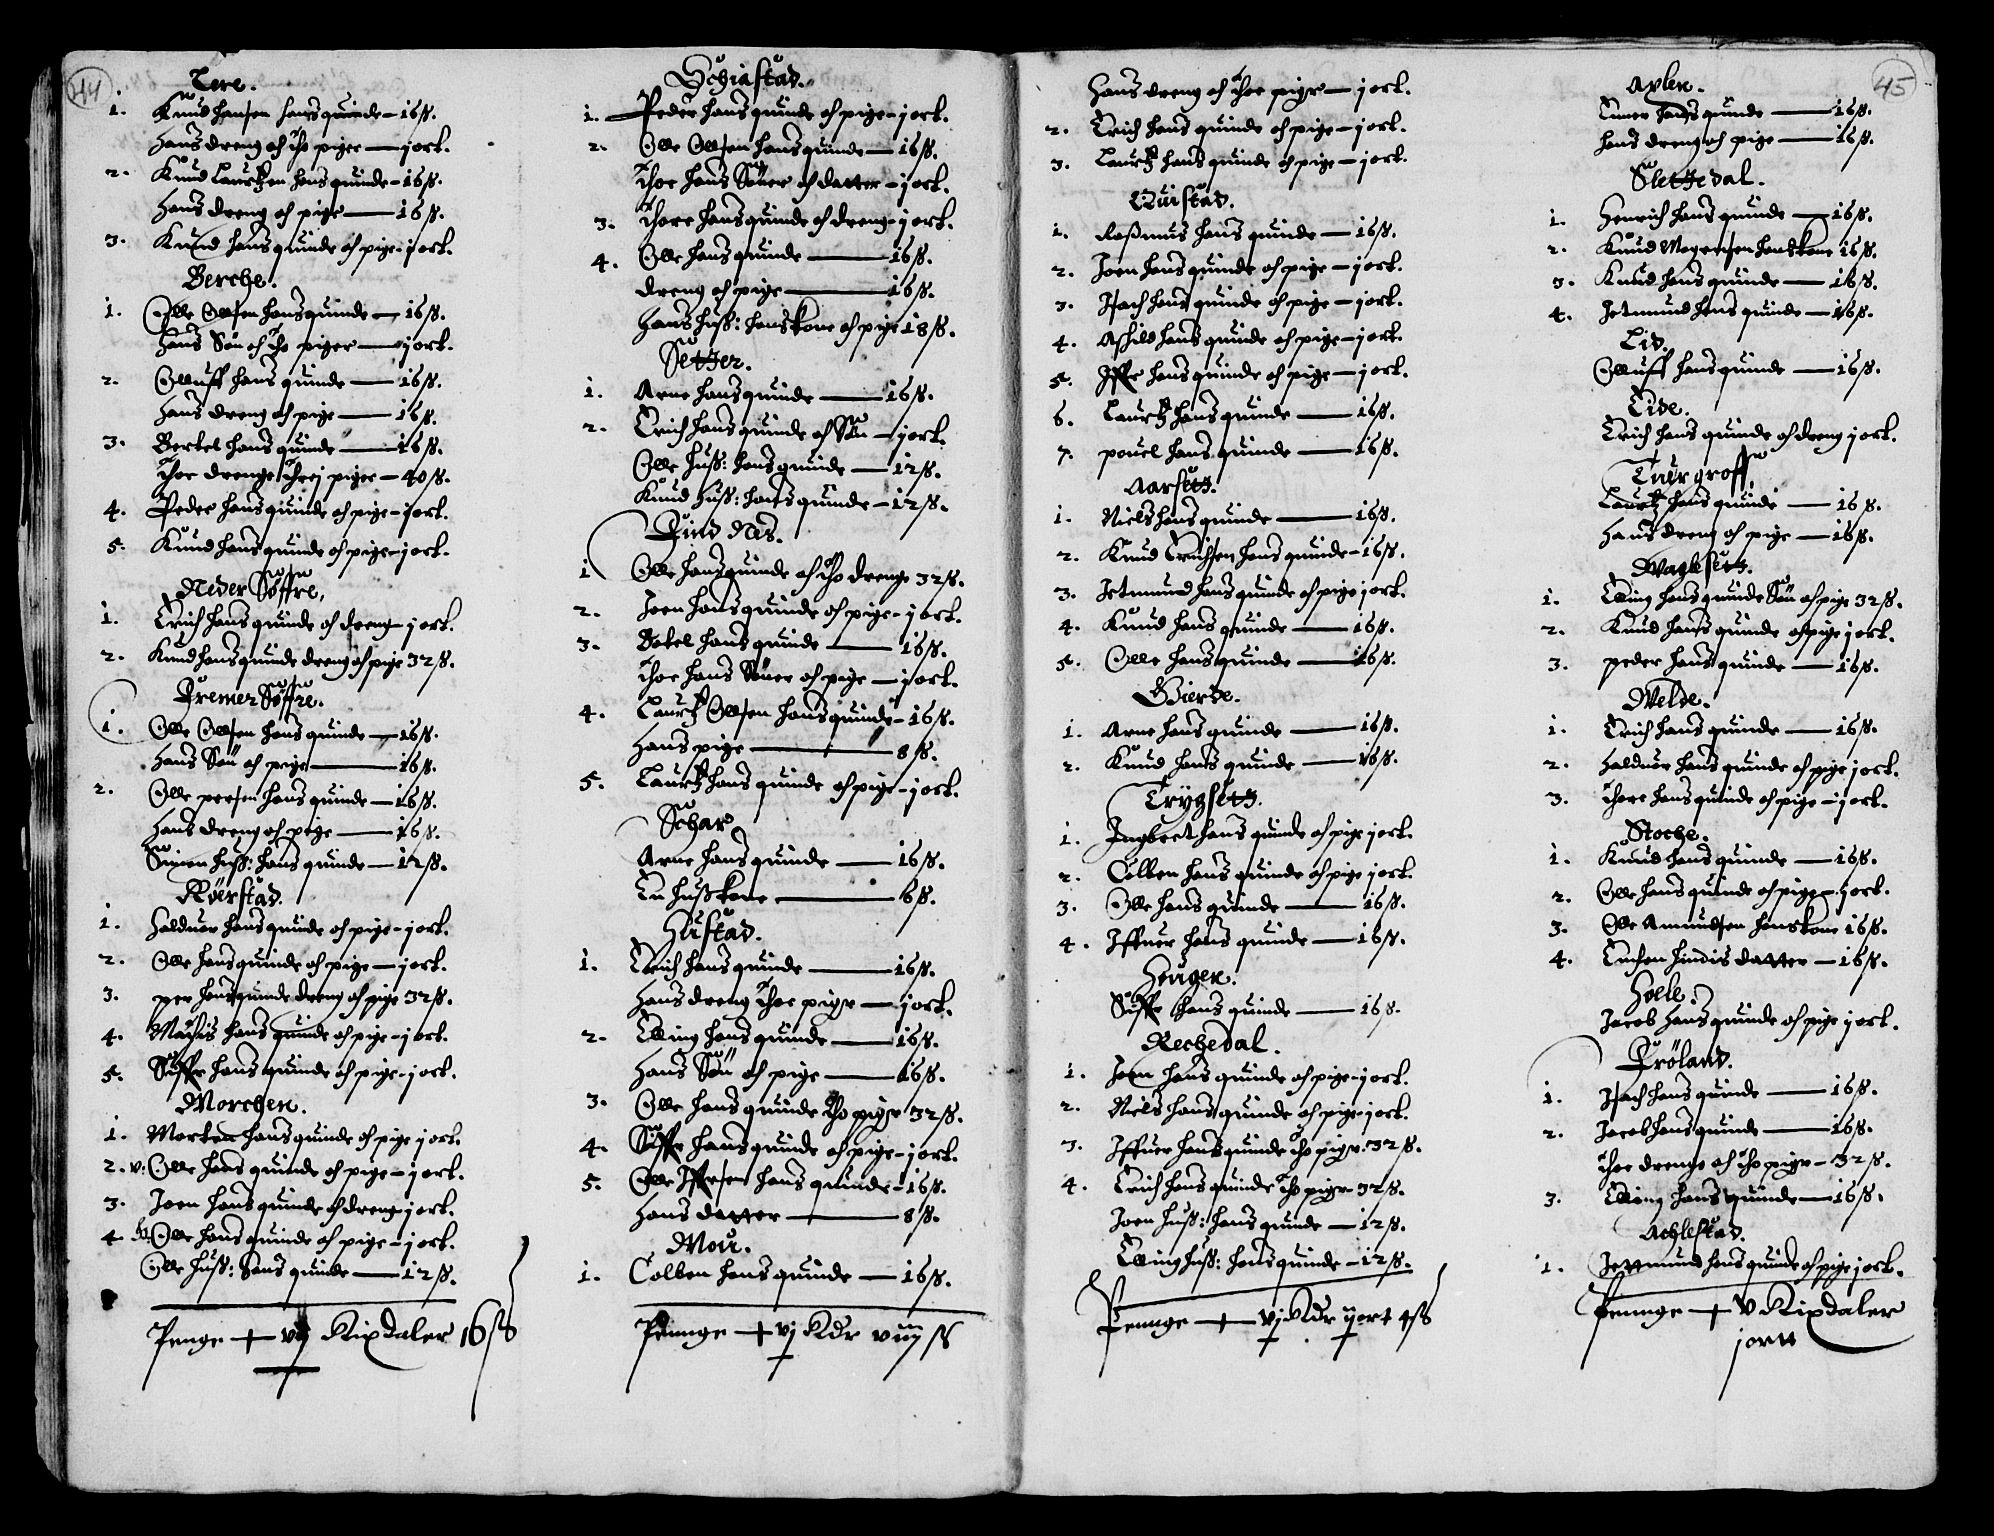 44
Tere.
1. Knud hansen hans quinde - 16 ß.
Hans dreng och tho piger — jort.
2. Knud Lauritzen hans quinde - 16 ß.
Hans dreng och pige — 16 ß.
3. Knud hans quinde och pige - jort.
Berche.
1. Olle Olsen hans quinde — 16 ß.
Hans Søn och tho piger — jort.
2. Olluff hans quinde — 16 ß.
Hans dreng och pige — 16 ß.
3. Bertel hans quinde — 16 ß.
Thoe drenge threj piger — 40 ß.
4. Peder hans quinde och pige - jort.
5. Knud hans quinde och pige - jort.
Neder Søffre.
1. Erich hans quinde och dreng - jort.
2. Knud hans quinde dreng och pige 32 ß.
Fremer Søffre.
1. Olle Olsen hans quinde — 16 ß.
Hans Søn och pige — 16 ß.
2. Olle persen hans quinde — 16 ß.
Hans dreng och pige — 16 ß.
Simen huß: hans quinde — 12 ß.
Røerstad.
1. Halduor hans quinde och pige - jort.
2. Olle hans quinde och pige — jort.
3. per hans quinde dreng och pige 32 ß.
4. Mathis hans quinde och pige - jort.
5. Siffr hans quinde och pige - jort.
Morchen.
1. Morten hans quinde och pige jort.
2. v: Olle hans quinde och pige - jort.
3. Joen hans quinde och dreng jort.
4. Olle hans quinde och pige - jort.
Olle huß: hans quinde — 12 ß.
Penge + vij Rixdaler 16 ß
Schiastad.
1. Peder hans quinde och pige - jort.
2. Olle Olsen hans quinde — 16 ß.
Thoe hans Søner och datter - jort.
3. Thore hans quinde och dreng - jort.
4. Olle hans quinde — 16 ß.
dreng och pige — 16 ß.
Hans huß: hanskone och pige 18 ß.
Setzer.
1. Arne hans quinde — 16 ß.
2. Erich hans quinde och Søn - jort.
Olle huß: hans quinde — 12 ß.
Knud huß: hans quinde - 12 ß.
Find Næs.
1 Olle hans quinde och tho drenge 32 ß.
2. Joen hans quinde och pige - jort.
3. Botel hans quinde — 16 ß.
Thoe hans Søner och pige — jort.
4. Lauritz Olsen hans quinde - 16 ß.
Hans pige — 8 ß.
5. Lauritz hans quinde och pige - jort.
Schar
Arne hans quinde — 16 ß.
En hußkone — 6 ß.
Hustad.
1. Erich hans quinde — 16 ß.
Hans dreng thoe pigr — jort.
2. Elling hans quinde — 16 ß.
Hans Søn och pige — 16 ß.
3. Olle hans quinde tho pigr 32 ß.
4. Siffr hans quinde och pige - jort.
5. Olle Iffersen hans quinde - 16 ß.
Hans datter — 8 ß.
Moir.
1. Colben hans quinde — 16 ß.
Penge + vj Rdr viij ß
Hans dreng och thoe pigr — jort.
2. Erich hans quinde och pige - jort.
3. Lauritz hans quinde och pige - jort.
Quistad.
1. Raßmus hans quinde — 16 ß.
2. Joen hans quinde och pige - jort.
3. Isach hans quinde och pige - jort.
4. Askild hans quinde och pige - jort.
5. Iffr hans quinde och pige - jort.
6. Lauritz hans quinde — 16 ß.
7. pouel hans quinde — 16 ß.
Aarsetz.
1. Niels hans quinde — 16 ß.
2. Knud Erichsen hans quinde - 16 ß.
3. Jetmund hans quinde och pige jort.
4. Knud hans quinde — 16 ß.
5. Olle hans quinde — 16 ß.
Gierde.
1. Arne hans quinde — 16 ß.
2. Knud hans quinde — 16 ß.
Trygsetz.
1. Ingbret hans quinde och pige jort.
2. Colben hans quinde och pige jort.
3. Olle hans quinde — 16 ß.
4. Iffuer hans quinde — 16 ß.
Houger.
Siffr hans quinde — 16 ß.
Rechedal.
1. Joen hans quinde och pige - jort.
2. Niels hans quinde och pige jort.
3. Iffuer hans quinde tho pigr. 32 ß.
4. Erich hans quinde tho pigr 32 ß.
Joen huß: hans quinde — 12 ß.
Elling huß: hans quinde - 12 ß.
Penge + vj Rdr ijort 4 ß
45
Aplen.
Einer hans quinde — 16 ß.
hans dreng och pige — 16 ß.
Sletzedal.
1. Henrich hans quinde — 16 ß.
2. Knud Mogensen hanskone 16 ß.
3. Knud hans quinde — 16 ß.
4. Jetmund hans quinde — 16 ß.
Lid.
Olluff hans quinde — 16 ß.
Eide.
Erich hans quinde och dreng jort.
Tuergroff.
Lauritz hans quinde — 16 ß.
Hans dreng och pige — 16 ß.
Waglsetz.
1. Elling hans quinde Søn och pige 32 ß.
2. Knud hans quinde och pige jort.
3. peder hans quinde — 16 ß.
Welde.
1. Erich hans quinde — 16 ß.
2. Halduor hans quinde och pige jort.
3. Thore hans quinde och pige - jort.
Stoche.
1. Knud hans quinde — 16 ß.
2. Olle hans quinde och pige - jort.
3. Olle Amundsen hanskone 16 ß.
4. Enchen hindis datter — 16 ß.
Holle.
Jacob hans quinde och pige jort.
Frøland.
1. Isach hans quinde — 16 ß.
2. Jacob hans quinde — 16 ß.
Thoe drenge och tho pigr - 32 ß.
3. Elling hans quinde — 16 ß.
Achlestad.
1. Jettmund hans quinde och pige jort.
Penge + V Rixdaler
jortt